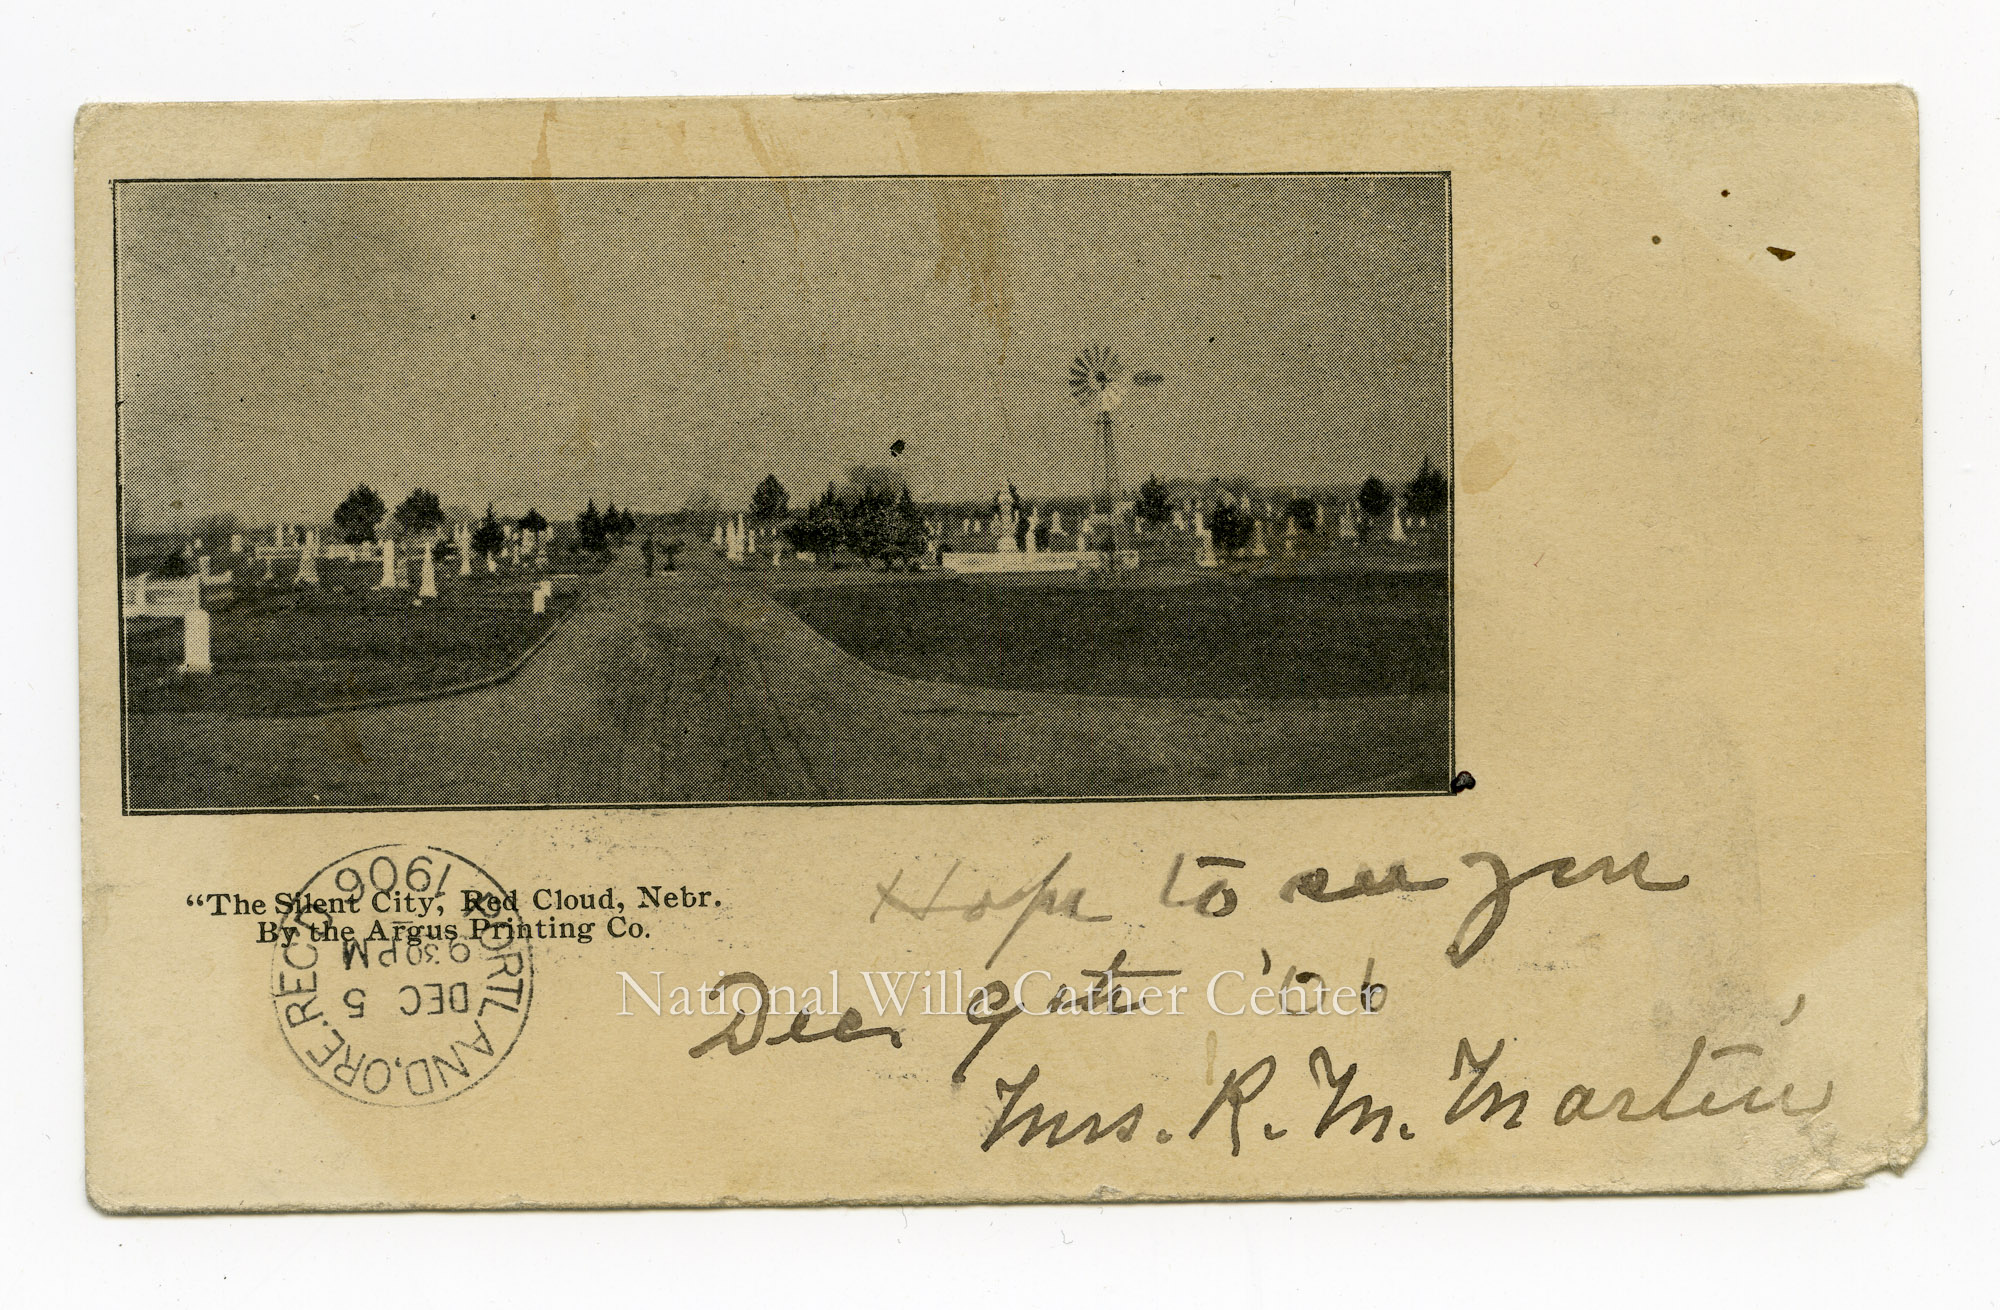 "The Silent City, Red Cloud, Nebr.
By the Argus Printing Co.
PORTLAND, ORE. REC'D
DEC 5
9 30 PM
1906
Hope to see you
Dec 9th '06
Mrs. R. M. Martin
National Willa Cather Center